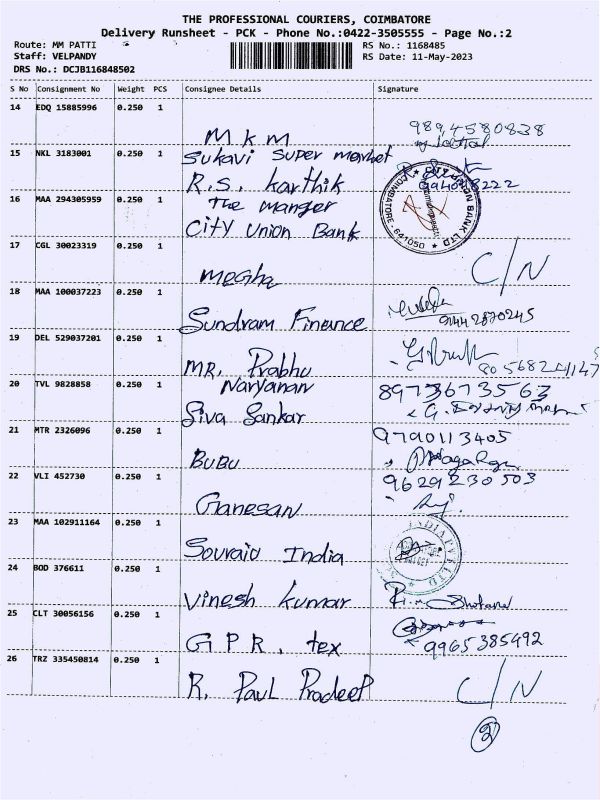 THE PROFESSIONAL COURIERS, COIMBATORE
Delivery Runsheet - PCK - Phone No.:0422-3505555 - Page No.:2
Route: MM PATTI
RS No.: 1168485
Staff: VELPANDY
RS Date: 11-May-2023
DRS No.: DCJB116848502
S No Consignment No Weight PCS Consignee Details Signature
14 EDQ 15885996 0.250 1
MKM
9894580838
15 NKL 3183001 0.250 1 Sukavi Super market
R.S. karthik
16 MAA 294305959 0.250 1 The manger
City Union Bank
COIMBATORE - 641050
BANK LTD
17 CGL 30023319 0.250 1
megha
C/N
18 MAA 100037223 0.250 1
Sundram Finance
9442870245
19 DEL 529037201 0.250 1
MR. Prabhu
20 TVL 9828858 0.250 1 Naryanan
8973673563
Siva Sankar
21 MTR 2326096 0.250 1
9790113405
BUBU
22 VLI 452730 0.250 1
9629230503
Ganesan
23 MAA 102911164 0.250 1
INDIA PVT LTD
Souraiv India
24 BOD 376611 0.250 1
Vinesh kumar
25 CLT 30056156 0.250 1
G P R. tex
9965385492
26 TRZ 335450814 0.250 1
R. Paul Pradeep
C/N
2